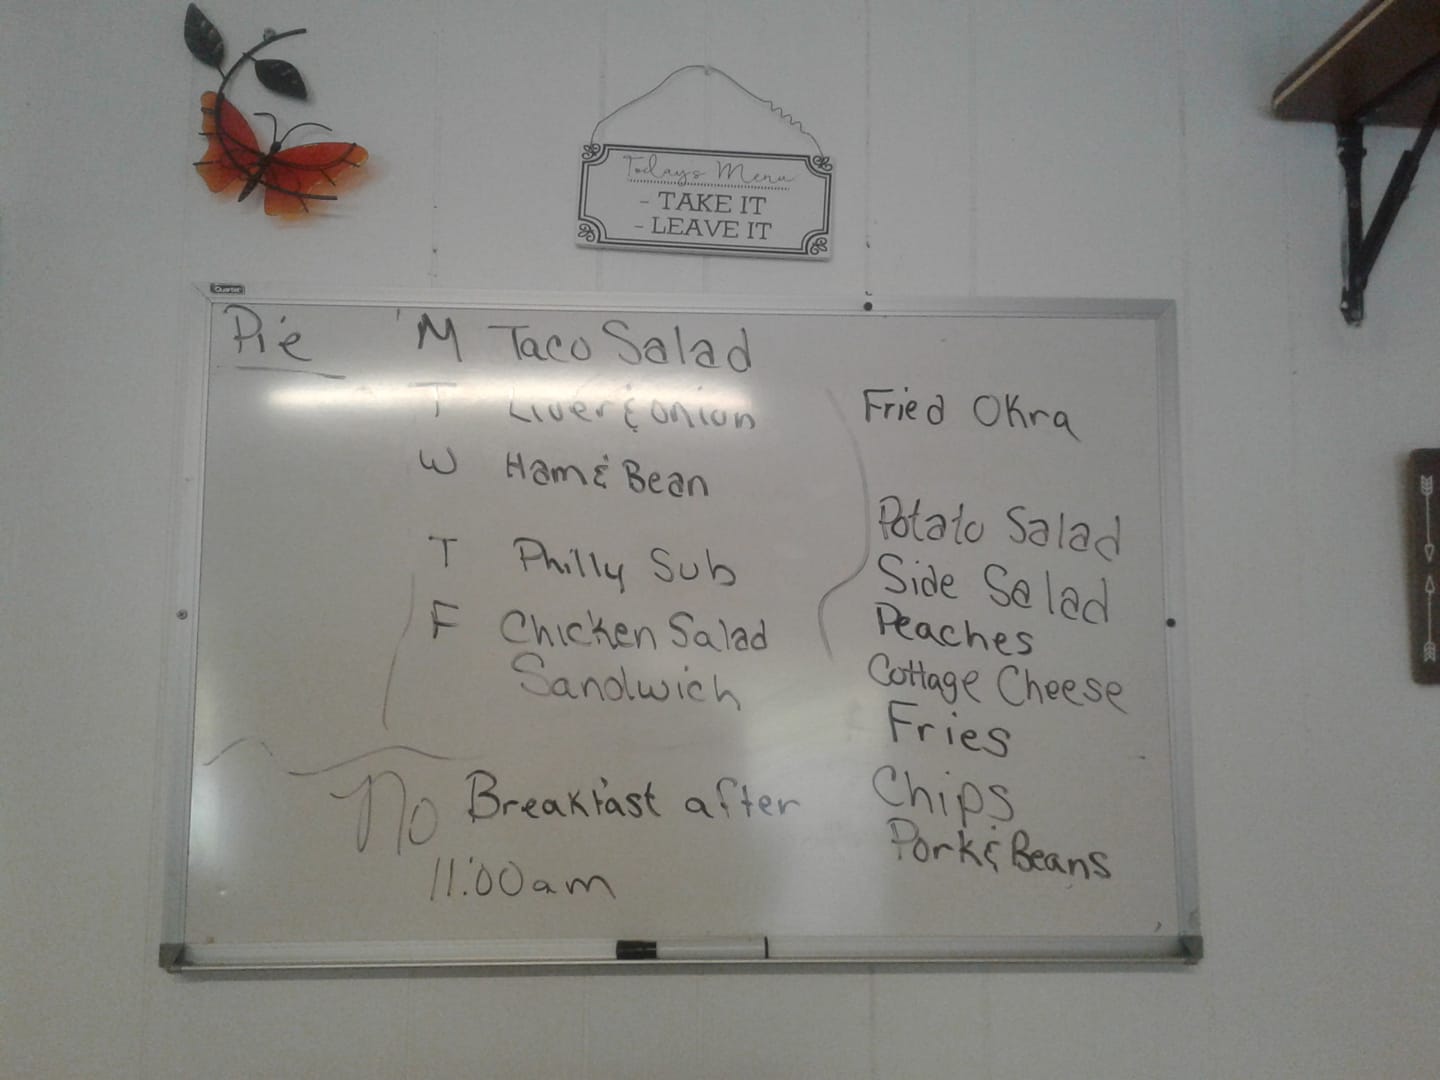 Todays Menu
- TAKE IT
- LEAVE IT
Quartet
Pie
M Taco Salad
T Liver & onion
W Ham & Bean
T Philly Sub
F Chicken Salad
Sandwich
No Breakfast after
11:00am
Fried Okra
Potato Salad
Side Salad
Peaches
Cottage Cheese
Fries
Chips
Pork & Beans